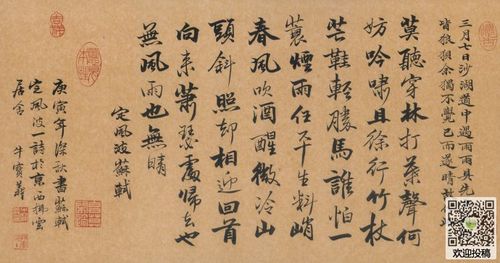 三月七日沙湖道中遇雨雨具先
皆狼狽余獨不覺已而遂晴故
莫聽穿林打葉聲何
妨吟嘯且徐行竹杖
芒鞋輕勝馬誰怕一
蓑煙雨任平生料峭
春風吹酒醒微冷山
頭斜照却相迎回首
向来蕭瑟處歸去也
無風雨也無晴
定風波蘇軾
庚寅年深秋書蘇軾
定風波一詩於京西拂雲
居舍 牛寶
欢迎投稿